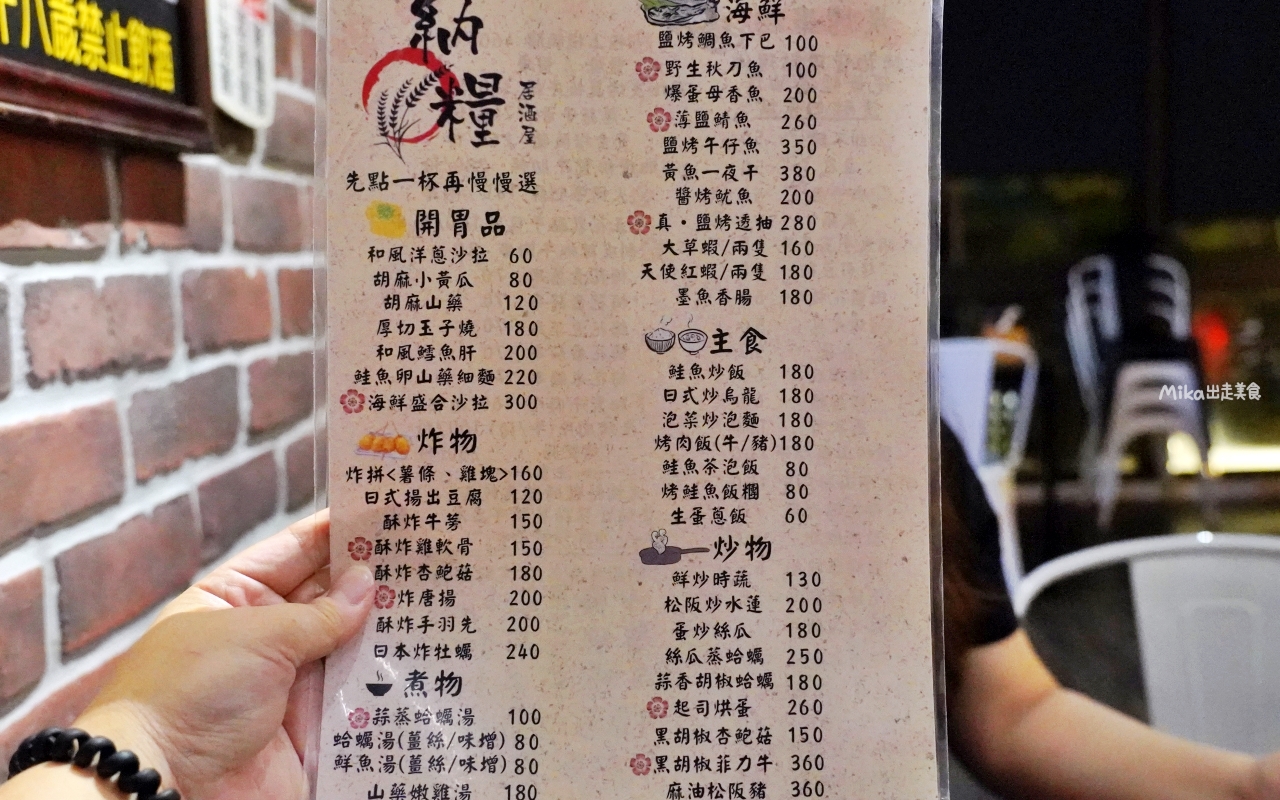 十八歲禁止飲酒
納糧
居酒屋
先點一杯再慢慢選
開胃品
和風洋蔥沙拉 60
胡麻小黃瓜 80
胡麻山藥 120
厚切玉子燒 180
和風鱈魚肝 200
鮭魚卵山藥細麵 220
海鮮盛合沙拉 300
炸物
炸拼<薯條、雞塊> 160
日式揚出豆腐 120
酥炸牛蒡 150
酥炸雞軟骨 150
酥炸杏鮑菇 180
炸唐揚 200
酥炸手羽先 200
日本炸牡蠣 240
煮物
蒜蒸蛤蠣湯 100
蛤蠣湯(薑絲/味增) 80
鮮魚湯(薑絲/味增) 80
山藥嫩雞湯 180
海鮮
鹽烤鯛魚下巴 100
野生秋刀魚 100
爆蛋母香魚 200
薄鹽鯖魚 260
鹽烤午仔魚 350
黃魚一夜干 380
醬烤魷魚 200
真・鹽烤透抽 280
大草蝦/兩隻 160
天使紅蝦/兩隻 180
墨魚香腸 180
主食
鮭魚炒飯 180
日式炒烏龍 180
泡菜炒泡麵 180
烤肉飯(牛/豬) 180
鮭魚茶泡飯 80
烤鮭魚飯糰 80
生蛋蔥飯 60
炒物
鮮炒時蔬 130
松阪炒水蓮 200
蛋炒絲瓜 180
絲瓜蒸蛤蠣 250
蒜香胡椒蛤蠣 180
起司烘蛋 260
黑胡椒杏鮑菇 150
黑胡椒菲力牛 360
麻油松阪豬 360
Mika出走美食